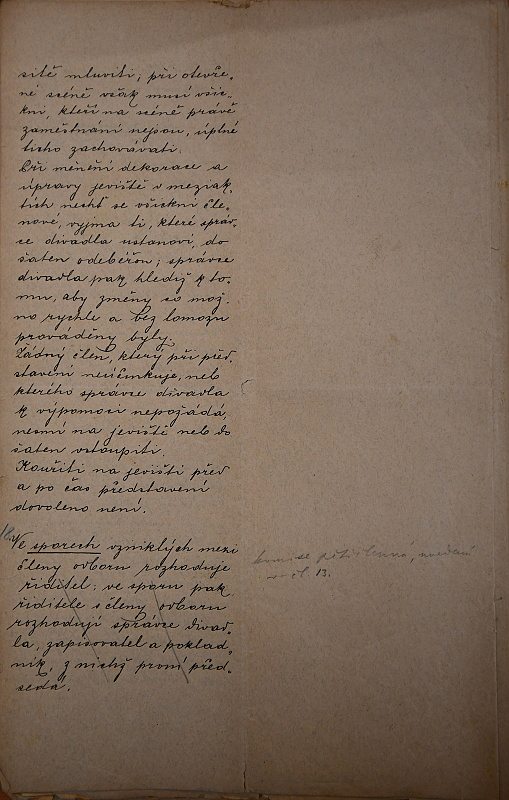 sitě mluviti; při otevře-
né scéně však musí všic-
kni, kteří na scéně právě
zaměstnáni nejsou, úplné
ticho zachovávati.
Při měnění dekorace a
úpravy jeviště v meziak-
tích nechť se všickni čle-
nové, vyjma ti, které správ-
ce divadla ustanoví, do
šaten odebéřou; správce
divadla pak hlediž k to-
mu, aby změny co mož-
no rychle a bez lomozu
prováděny byly.
Žádný člen, který při před-
stavení neúčinkuje, neb
kterého správce divadla
k výpomoci nepožádá,
nesmí na jeviště neb do
šaten vstoupiti.
Kouřiti na jevišti před
a po čas představení
dovoleno není.
18. Ve sporech vzniklých mezi
členy odboru rozhoduje
řiditel; ve sporu pak
řiditele s členy odboru
rozhodují správce divad-
la, zapisovatel a poklad-
ník, z nichž první před-
sedá.
komise pětičlenná, uvedená
v čl. 13.